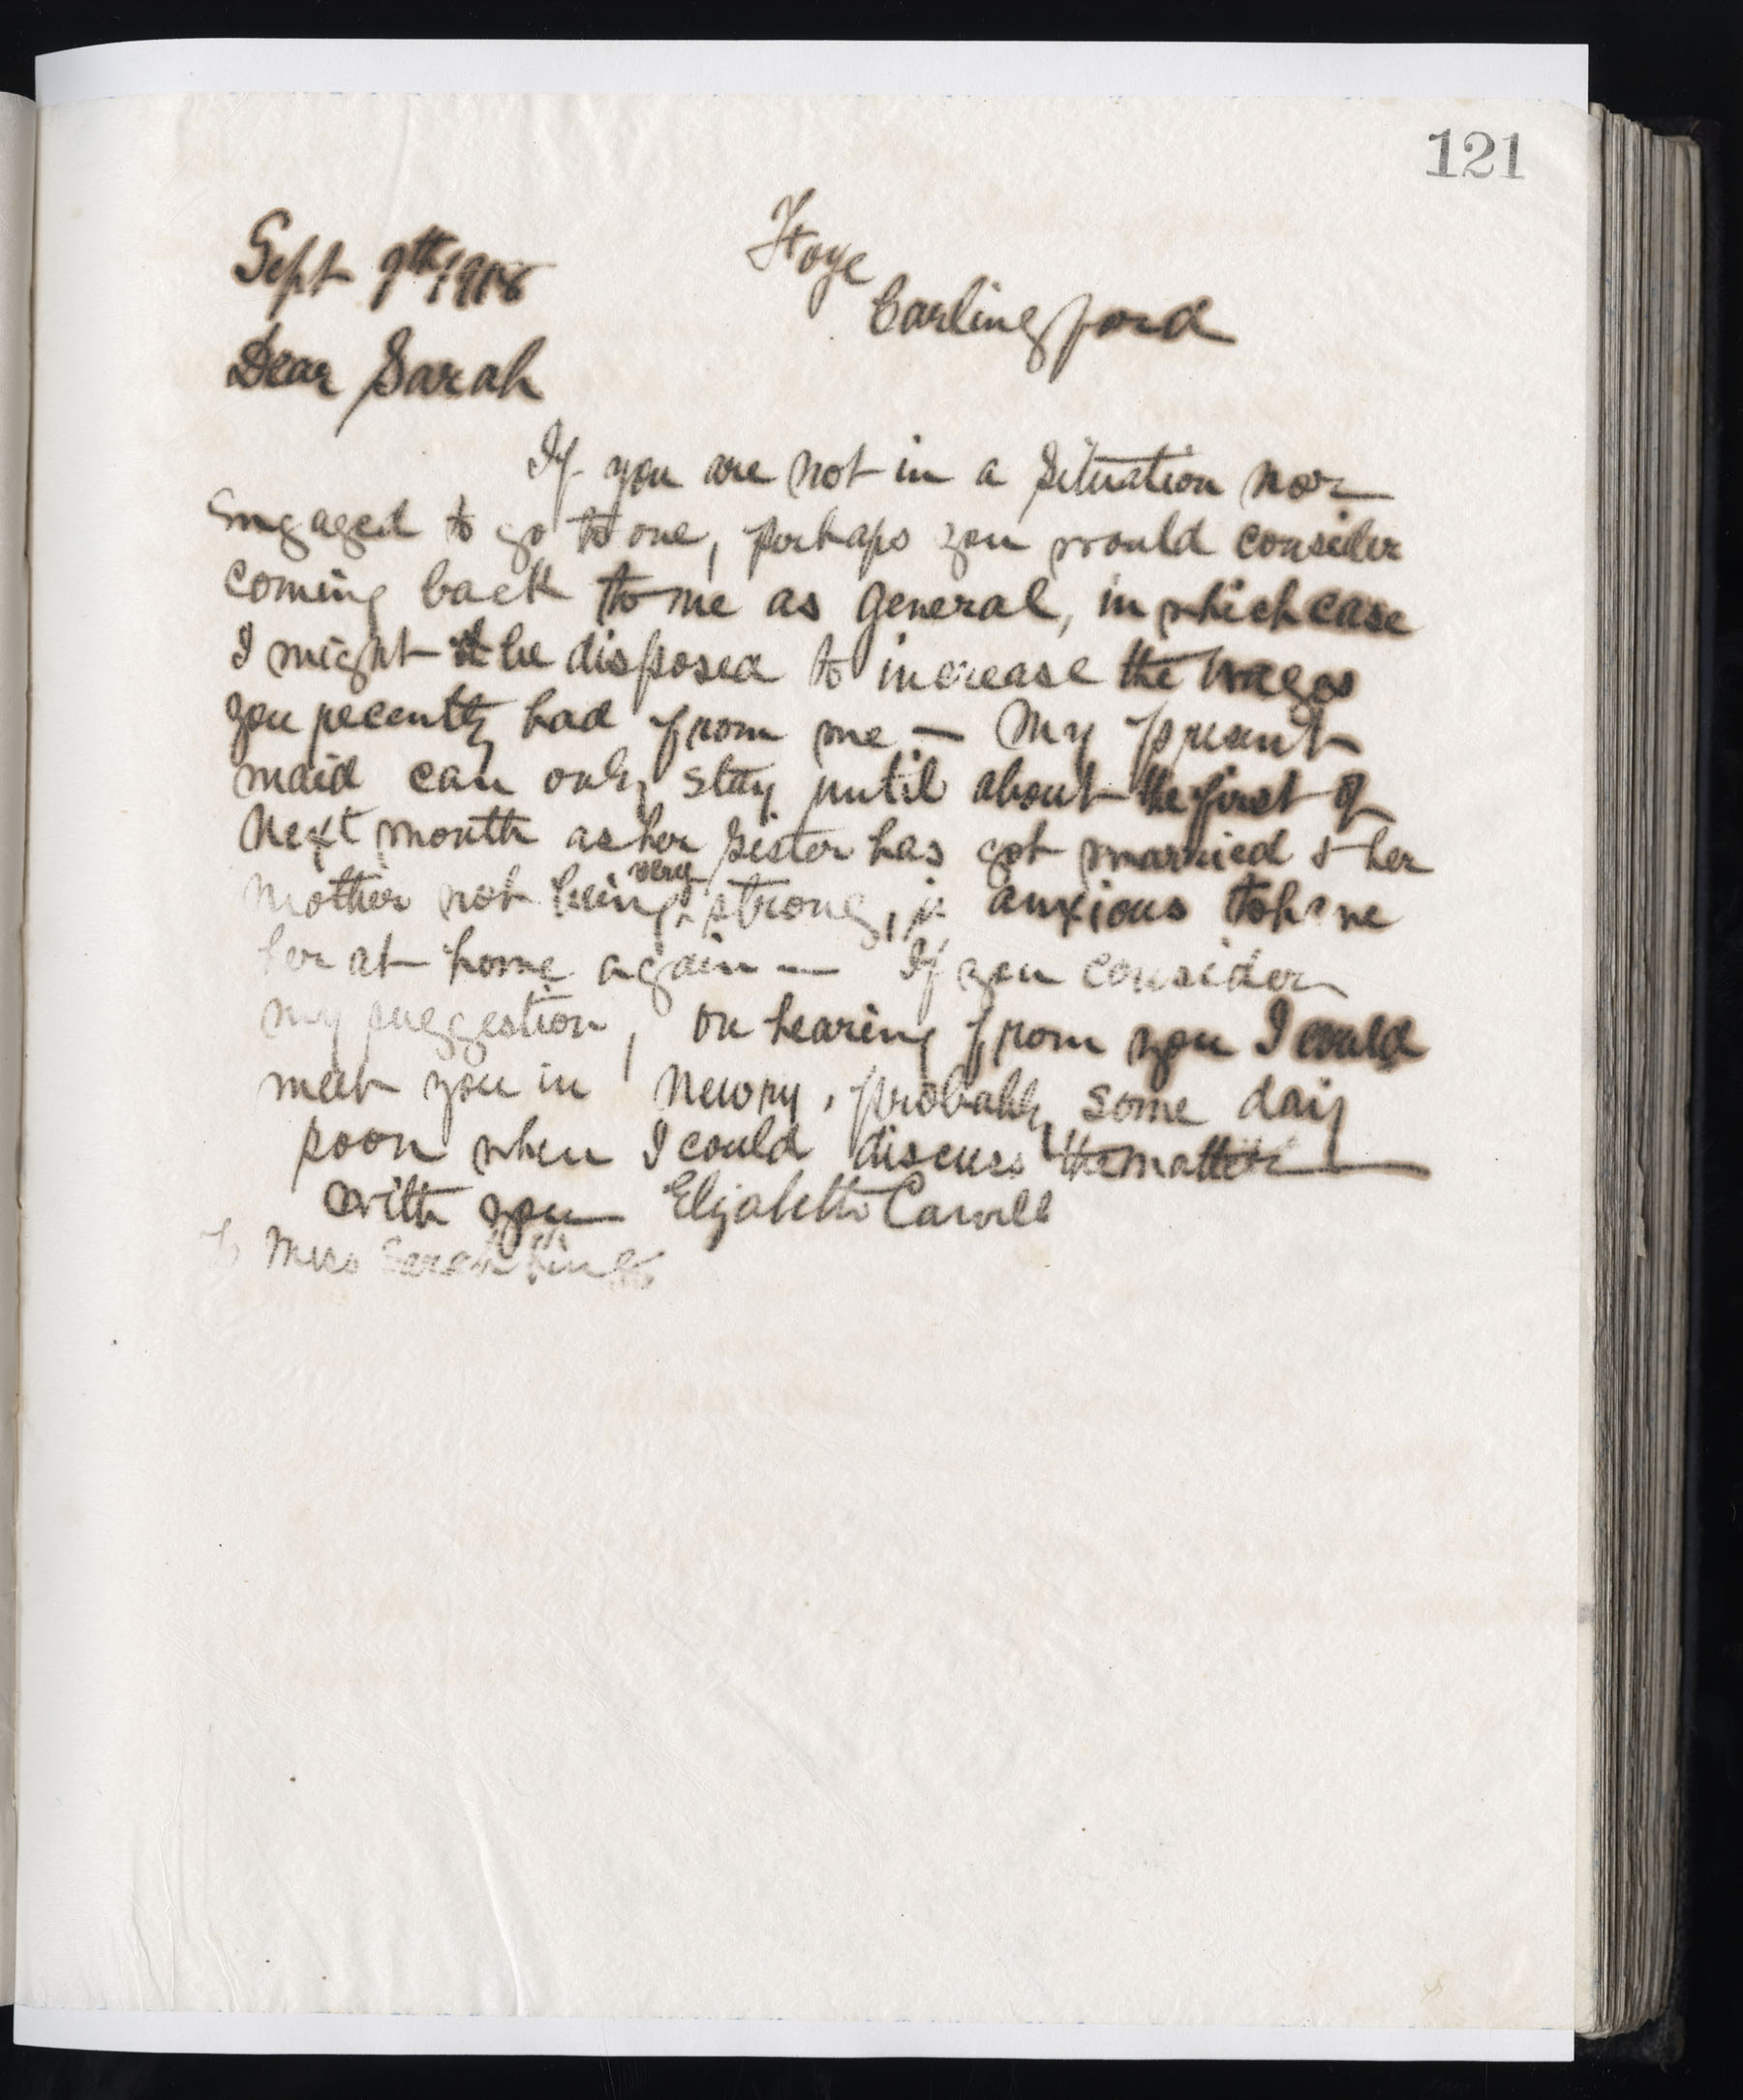 121
Sept 9th 1918
Hoye
Carlingford
Dear Sarah
If you are not in a situation nor
engaged to go to one, perhaps you would consider
coming back to me as general, in which case
I might be disposed to increase the wages
you recently had from me — My present
maid can only stay until about the first of
next month as her sister has got married & her
mother not being very strong, is anxious to have
her at home again — If you consider
my suggestion, on hearing from you I could
meet you in Newry, probably some day
soon when I could discuss the matter
with you Elizabeth Carvill
To Miss Sarah